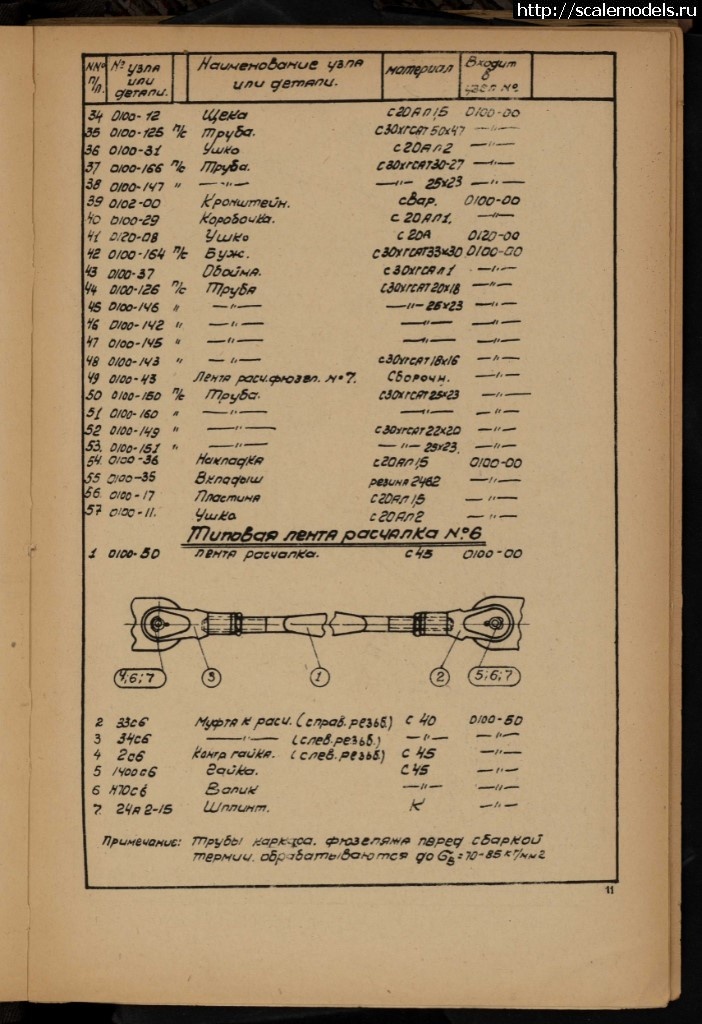 http://scalemodels.ru
NNº п/п. Nº узла или детали. Наименование узла или детали. материал Входит в узел №
34 0100-12 Щека с20Ал1,5 0100-00
35 0100-125 п/с Труба. с30хгсАт50х47 —"—
36 0100-31 Ушко с20Ал2 —"—
37 0100-166 п/с Труба. с30хгсАт30-27 —"—
38 0100-147 " —"— —"— 25х23 —"—
39 0102-00 Кронштейн. свар. 0100-00
40 0100-29 Коробочка. с20Ал1. —"—
41 0120-08 Ушко с20А 0120-00
42 0100-164 п/с Буж. с30хгсАт33х30 0100-00
43 0100-37 Обойма. с30хгсАл1 —"—
44 0100-126 п/с Труба с30хгсАт20х18 —"—
45 0100-146 " —"— —"— 25х23 —"—
46 0100-142 " —"— —"— —"—
47 0100-145 " —"— —"— —"—
48 0100-143 " —"— с30хгсАт18х16 —"—
49 0100-43 Лента расч.фюзел. Nº7. Сборочн. —"—
50 0100-150 п/с Труба. с30хгсАт25х23 —"—
51 0100-160 " —"— —"— —"—
52 0100-149 " —"— с30хгсАт22х20 —"—
53. 0100-151 " —"— —"— 25х23. —"—
54. 0100-36 Накладка с20Ал1,5 0100-00
55 0100-35 Вкладыш резина 2462 —"—
56. 0100-17 Пластина с20Ал1,5 —"—
57 0100-11. Ушко с20Ал2 —"—
Типовая лента расчалка Nº6
1 0100-50 лента расчалка. с45 0100-00
4;6;7 3 1 2 5;6;7
2 33с6 Муфта к расч. (справ.резьб.) с 40 0100-50
3 34с6 —"— (слев.резьб.) —"— —"—
4 2с6 Контр гайка. (слев.резьб) с 45 —"—
5 1400с6 Гайка. с45 —"—
6 Н70с6 Валик —"— —"—
7. 24А2-15 Шплинт. К —"—
Примечание: Трубы каркаса. фюзеляжа перед сваркой
термич. обрабатываются до Gв=70-85кг/мм2
11